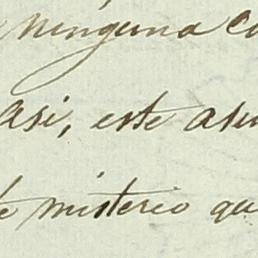 ninguna co
asi, este asu
te misterio qu